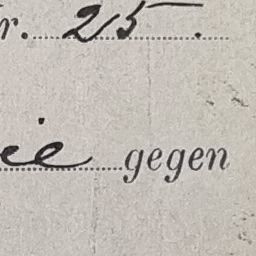 r. 25.
ie gegen